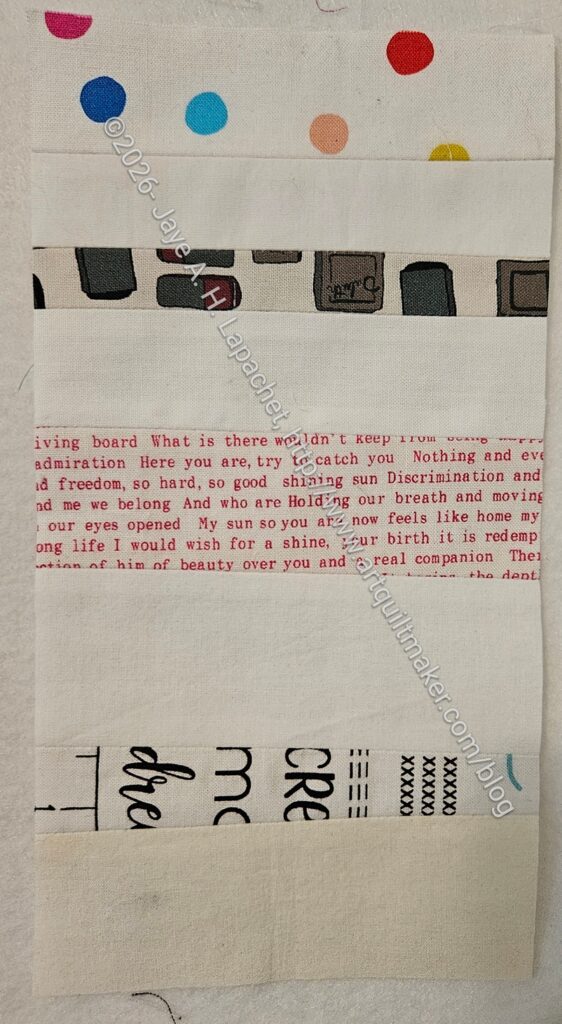 ©2026- Jaye A. H. Lapachet, http://www.artquiltmaker.com/blog
iving board What is there wouldn't keep from being happy
admiration Here you are, try to catch you Nothing and eve
nd freedom, so hard, so good shining sun Discrimination and
nd me we belong And who are Holding our breath and moving
our eyes opened My sun so you are now feels like home my
ong life I would wish for a shine, your birth it is redemp
ction of him of beauty over you and real companion Ther
the dept
dre
mo
CRE
xxxxx
xxxxx
xxxxx